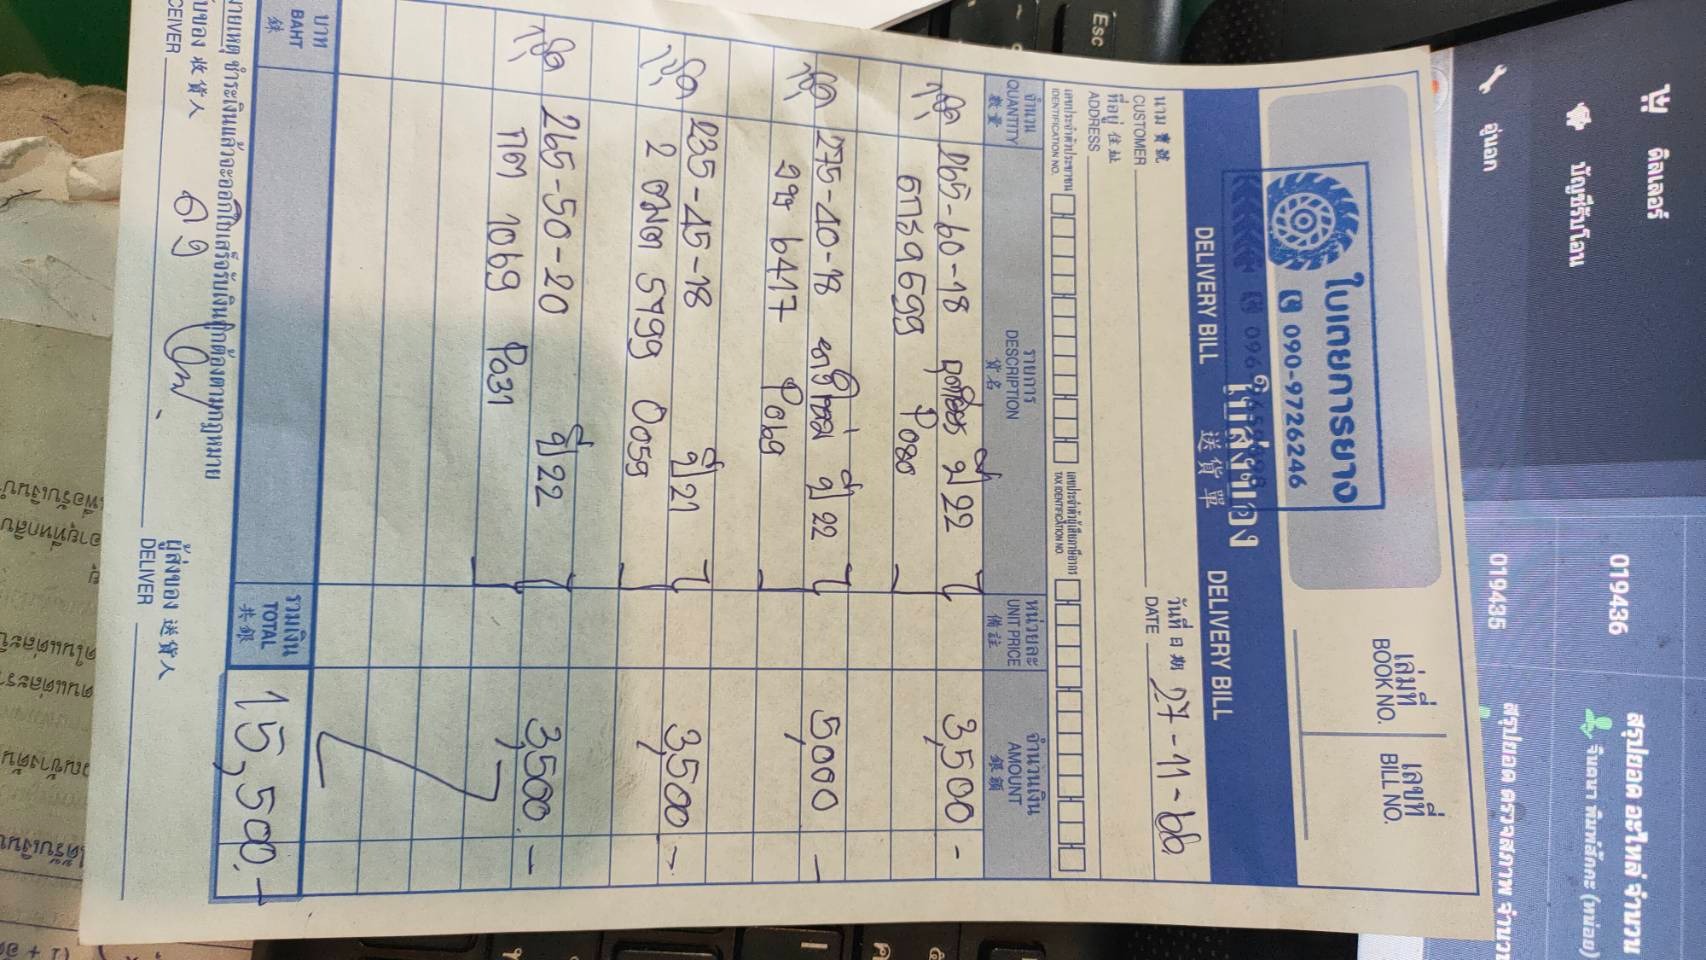 ใบเตยการยาง
090-9726246
ใบส่งของ
送貨單
DELIVERY BILL
DELIVERY BILL
เล่มที่
BOOK NO.
เลขที่
BILL NO.
นาม 寶號
CUSTOMER
วันที่ 日期 27-11-66
DATE
ที่อยู่ 住址
ADDRESS
เลขประจำตัวประชาชน
IDENTIFICATION NO.
เลขประจำตัวผู้เสียภาษีอากร
TAX IDENTIFICATION NO.
จำนวน
QUANTITY
數量
รายการ
DESCRIPTION
貨名
หน่วยละ
UNIT PRICE
備註
จำนวนเงิน
AMOUNT
銀額
265-60-18 ปี 22 3,500 -
9699 P080
275-40-18 ปี 22 5,000 -
6417 P069
235-45-18 ปี 21 3,500 -
2 ขมต 5799 P059
265-50-20 ปี 22 3,500 -
1069 P031
บาท
BAHT
銖
รวมเงิน
TOTAL
共銀
15,500.-
ายเหตุ ชำระเงินแล้วจะออกใบเสร็จรับเงินถูกต้องตามกฎหมาย
บของ 收貨人
CEIVER
ผู้ส่งของ 送貨人
DELIVER
Esc
ดิลเลอร์
อู่นอก
บัญชีรับโอน
019436
019435
สรุปยอด อะไหล่ จำนวน
จินตนา พิมพ์สักคะ (หน่อย)
สรุปยอด ตรวจสภาพ จำนวน